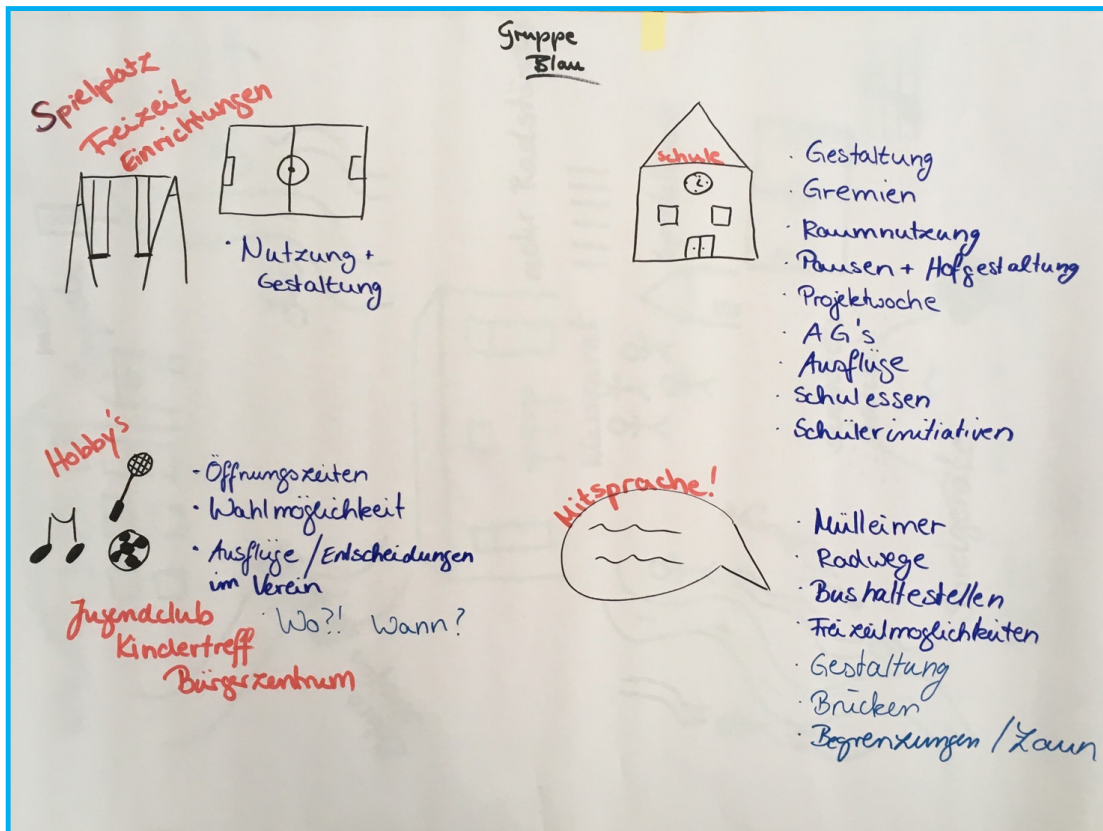 Gruppe
Blau
Spielplatz
Freizeit
Einrichtungen
· Nutzung +
Gestaltung
Schule
· Gestaltung
· Gremien
· Raumnutzung
· Pausen + Hofgestaltung
· Projektwoche
· AG's
· Ausflüge
· Schulessen
· Schülerinitiativen
Hobby's
· Öffnungszeiten
· Wahlmöglichkeit
· Ausflüge / Entscheidungen
im Verein
· Wo?! Wann?
Jugendclub
Kindertreff
Bürgerzentrum
Mitsprache!
· Mülleimer
· Radwege
· Bushaltestellen
· Freizeitmöglichkeiten
· Gestaltung
· Brücken
· Begrenzungen / Zaun